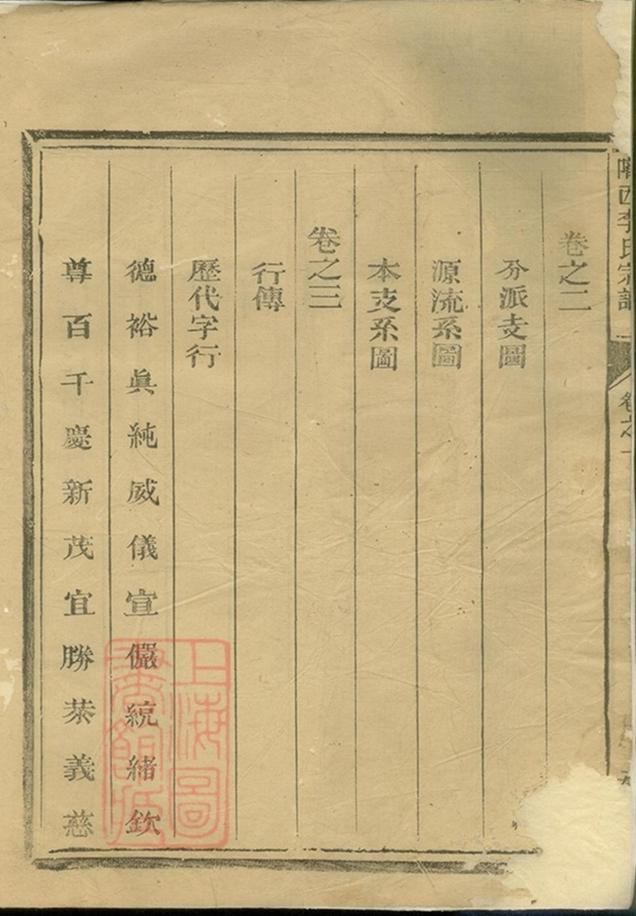 隴西李氏宗譜 卷之一
卷之二
分派支圖
源流系圖
本支系圖
卷之三
行傳
歷代字行
德裕眞純威儀宣儼統緒欽
尊百千慶新茂宜勝恭義慈
上海圖
書館藏